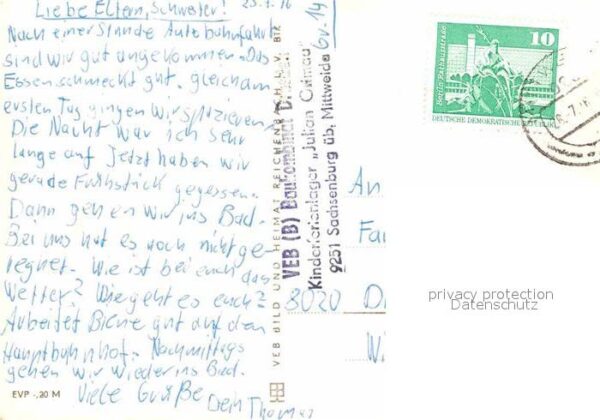 23.7.76
Liebe Eltern, Schwester!
Nach einer Stunde Autobahnfahrt
sind wir gut angekommen. Das
Essen schmeckt gut. gleich am
ersten Tag gingen wir spazieren.
Die Nacht war ich sehr
lange auf Jetzt haben wir
gerade Frühstück gegessen.
Dann gehen wir ins Bad.
Bei uns hat es noch nicht ge-
regnet. Wie ist bei euch das
Wetter? Wie geht es euch?
Arbeitet Biene gut auf den
Hauptbahnhof. Nachmittags
gehen wir wieder ins Bad.
Viele Grüße
Dein Thomas
EVP -,20 M
VEB BILD UND HEIMAT REICHENBACH I. V. BIZ
VEB (B) Baukombinat
Kinderferienlager „Julian
9251 Sachsenburg üb. Mittweida
6v-14
An
Fa
8020 D
W
10
Berlin, Rathausstraße
DEUTSCHE DEMOKRATISCHE
privacy protection
Datenschutz